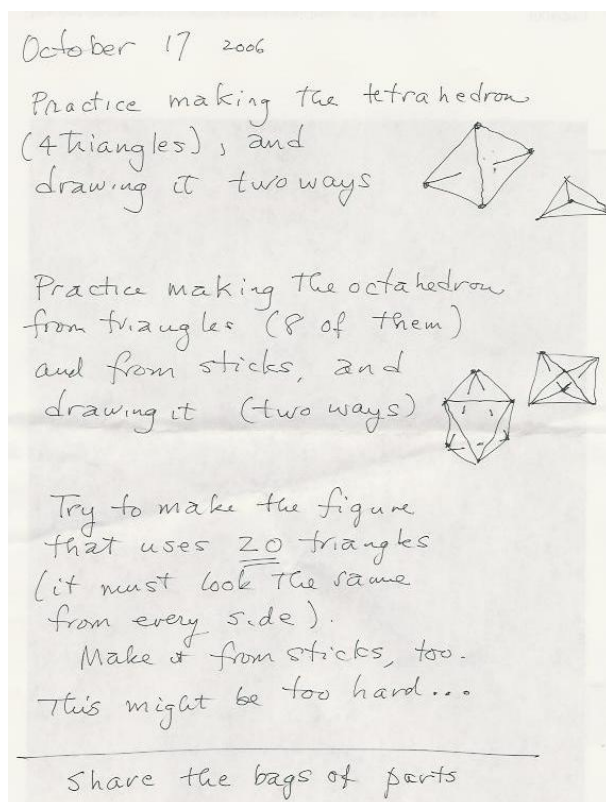 October 17 2006
Practice making the tetrahedron
(4 triangles), and
drawing it two ways
Practice making the octahedron
from triangles (8 of them)
and from sticks, and
drawing it (two ways)
Try to make the figure
that uses 20 triangles
(it must look the same
from every side).
Make it from sticks, too.
This might be too hard...
Share the bags of parts